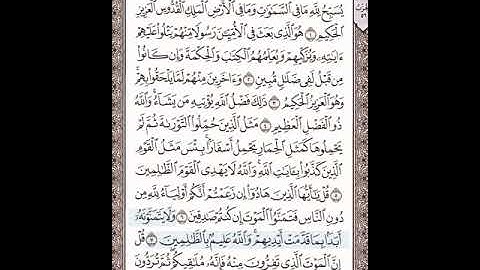 يُسَبِّحُ لِلَّهِ مَا فِي ٱلسَّمَٰوَٰتِ وَمَا فِي ٱلْأَرْضِ ٱلْمَلِكِ ٱلْقُدُّوسِ ٱلْعَزِيزِ
ٱلْحَكِيمِ ١ هُوَ ٱلَّذِي بَعَثَ فِي ٱلْأُمِّيِّـۧنَ رَسُولًا مِّنْهُمْ يَتْلُوا۟ عَلَيْهِمْ
ءَايَٰتِهِۦ وَيُزَكِّيهِمْ وَيُعَلِّمُهُمُ ٱلْكِتَٰبَ وَٱلْحِكْمَةَ وَإِن كَانُوا۟
مِن قَبْلُ لَفِي ضَلَٰلٍ مُّبِينٍ ٢ وَءَاخَرِينَ مِنْهُمْ لَمَّا يَلْحَقُوا۟ بِهِمْ
وَهُوَ ٱلْعَزِيزُ ٱلْحَكِيمُ ٣ ذَٰلِكَ فَضْلُ ٱللَّهِ يُؤْتِيهِ مَن يَشَآءُ وَٱللَّهُ
ذُو ٱلْفَضْلِ ٱلْعَظِيمِ ٤ مَثَلُ ٱلَّذِينَ حُمِّلُوا۟ ٱلتَّوْرَىٰةَ ثُمَّ لَمْ
يَحْمِلُوهَا كَمَثَلِ ٱلْحِمَارِ يَحْمِلُ أَسْفَارًۢا بِئْسَ مَثَلُ ٱلْقَوْمِ
ٱلَّذِينَ كَذَّبُوا۟ بِـَٔايَٰتِ ٱللَّهِ وَٱللَّهُ لَا يَهْدِي ٱلْقَوْمَ ٱلظَّٰلِمِينَ
٥ قُلْ يَٰٓأَيُّهَا ٱلَّذِينَ هَادُوٓا۟ إِن زَعَمْتُمْ أَنَّكُمْ أَوْلِيَآءُ لِلَّهِ مِن
دُونِ ٱلنَّاسِ فَتَمَنَّوُا۟ ٱلْمَوْتَ إِن كُنتُمْ صَٰدِقِينَ ٦ وَلَا يَتَمَنَّوْنَهُۥٓ
أَبَدًۢا بِمَا قَدَّمَتْ أَيْدِيهِمْ وَٱللَّهُ عَلِيمٌۢ بِٱلظَّٰلِمِينَ ٧ قُلْ
إِنَّ ٱلْمَوْتَ ٱلَّذِي تَفِرُّونَ مِنْهُ فَإِنَّهُۥ مُلَٰقِيكُمْ ثُمَّ تُرَدُّونَ